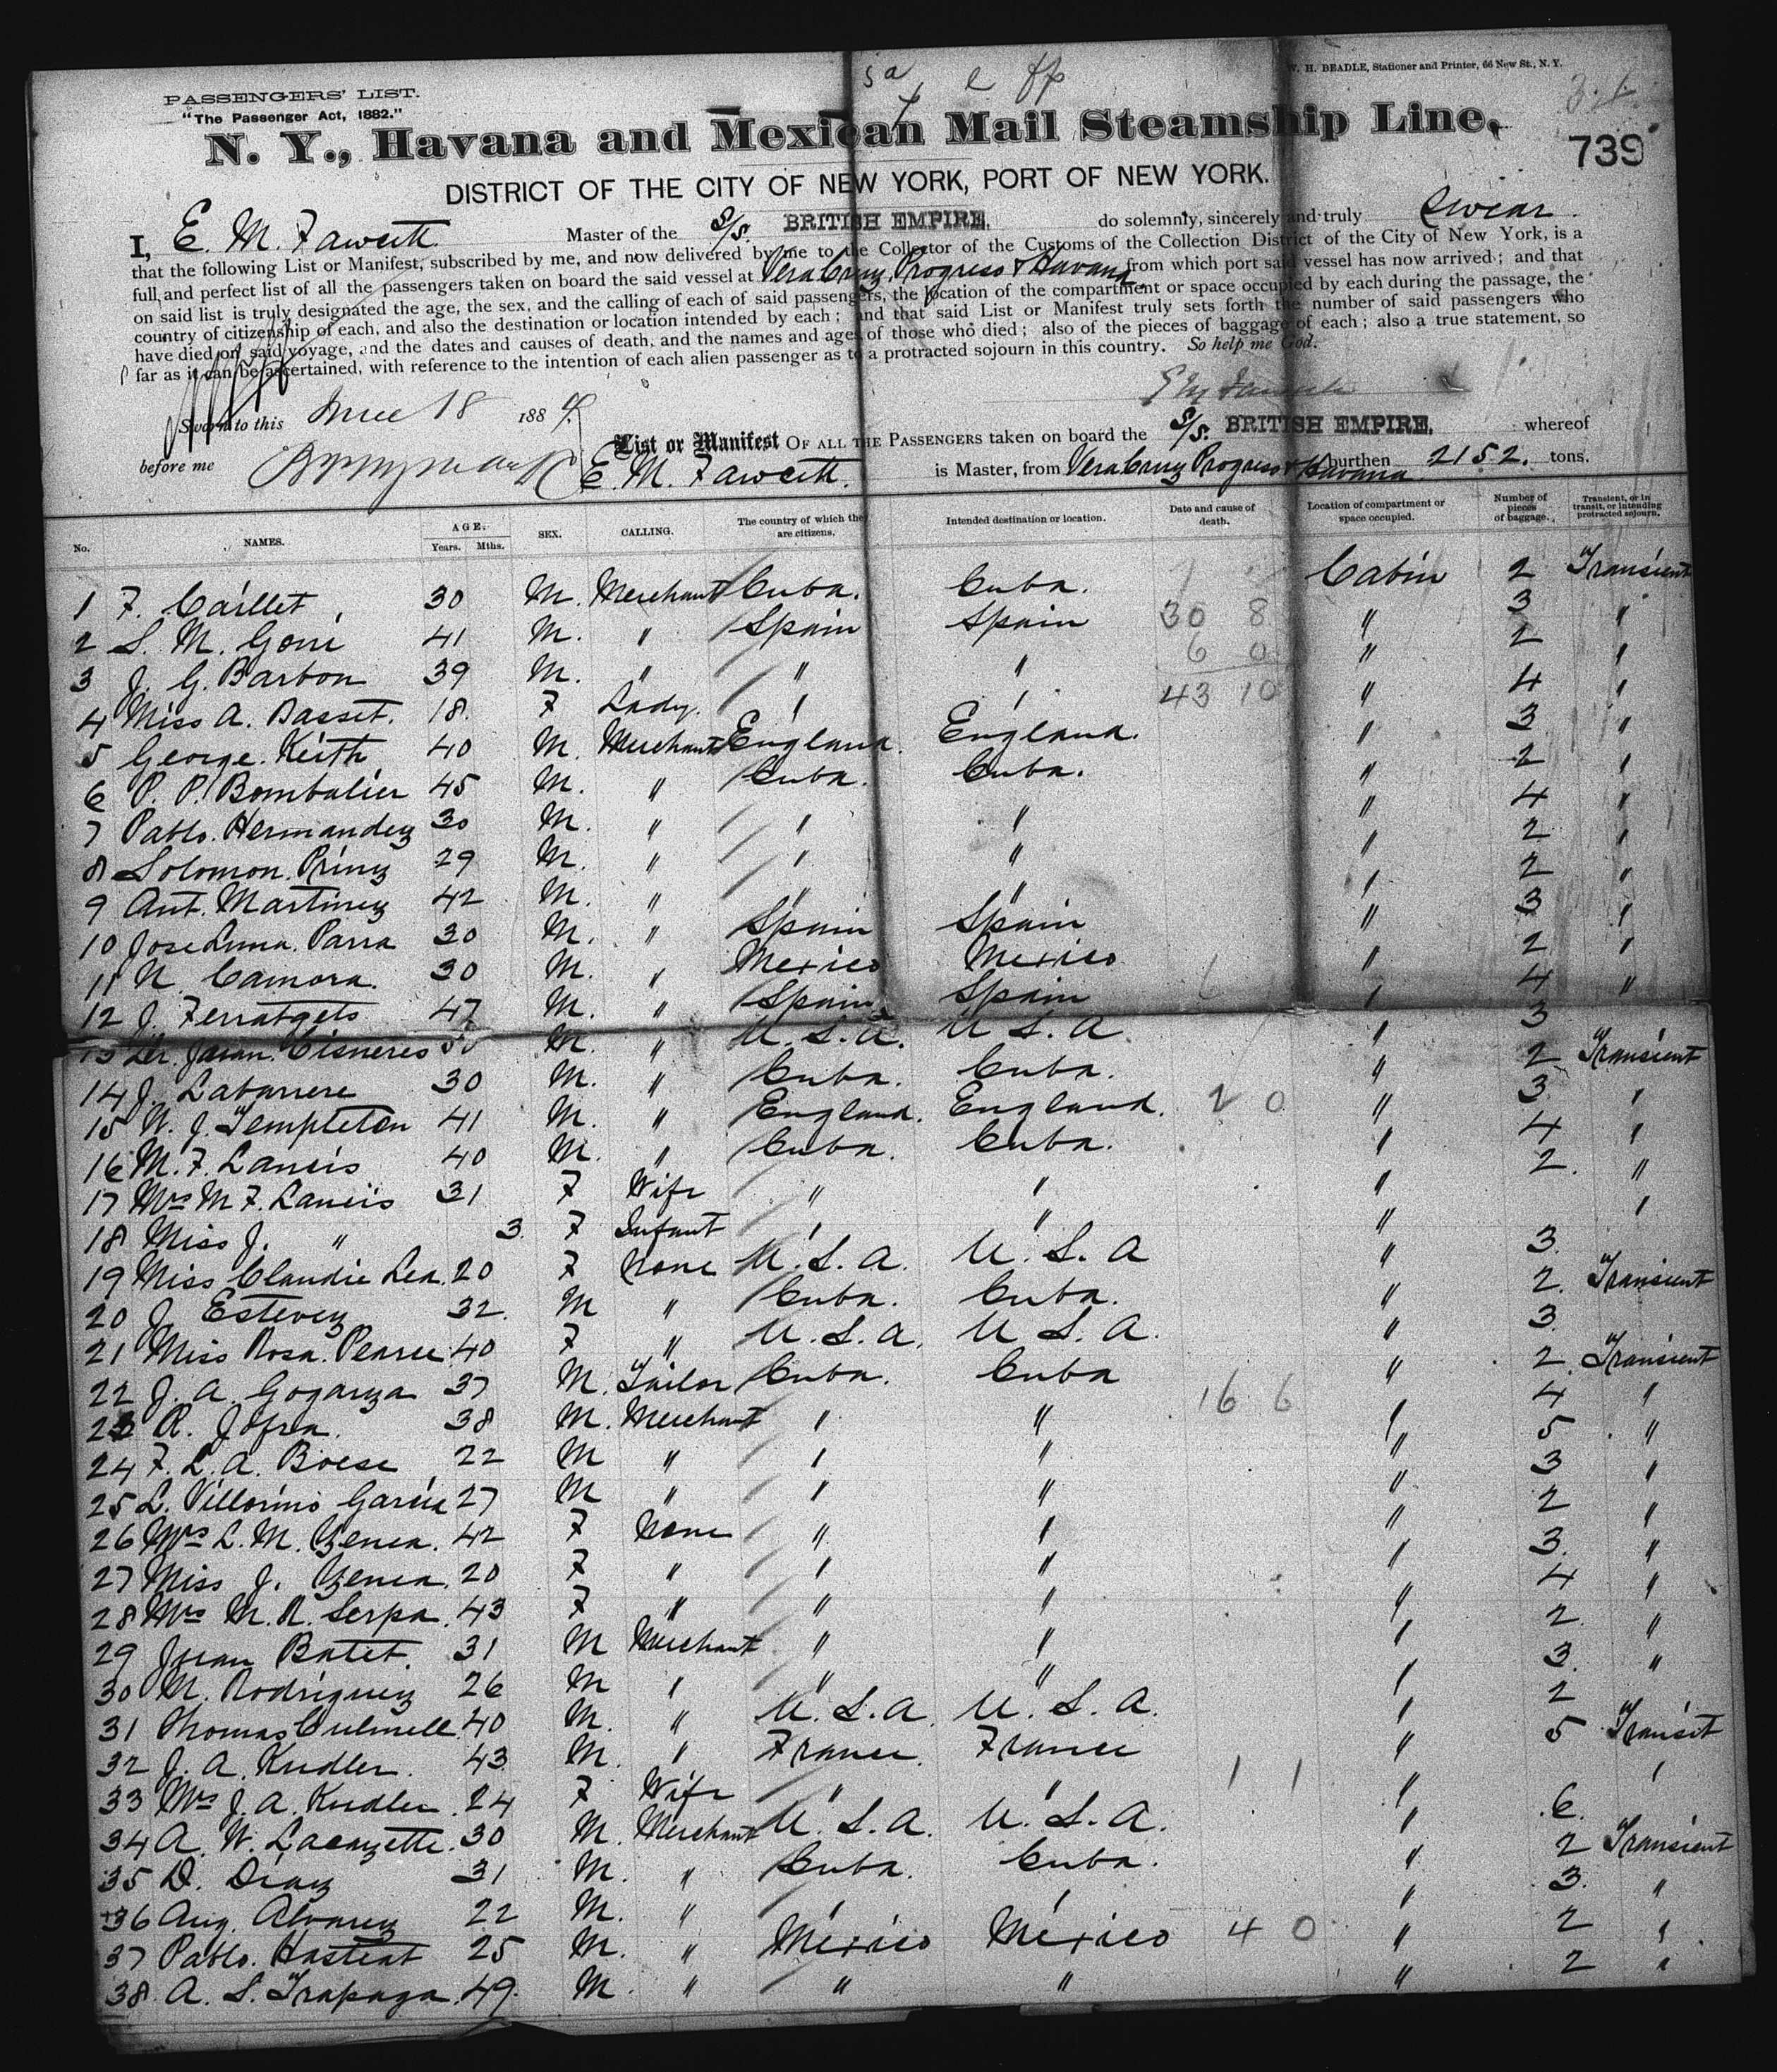 W. H. BEADLE, Stationer and Printer, 66 New St., N. Y.
PASSENGERS' LIST.
"The Passenger Act, 1882."
N. Y., Havana and Mexican Mail Steamship Line,
739
DISTRICT OF THE CITY OF NEW YORK, PORT OF NEW YORK.
I, E. M. Fawcett Master of the S/S. BRITISH EMPIRE, do solemnly, sincerely and truly swear
that the following List or Manifest, subscribed by me, and now delivered by me to the Collector of the Customs of the Collection District of the City of New York, is a
full and perfect list of all the passengers taken on board the said vessel at Vera Cruz, Progreso & Havana from which port said vessel has now arrived; and that
on said list is truly designated the age, the sex, and the calling of each of said passengers, the location of the compartment or space occupied by each during the passage, the
country of citizenship of each, and also the destination or location intended by each; and that said List or Manifest truly sets forth the number of said passengers who
have died on said voyage, and the dates and causes of death, and the names and ages of those who died; also of the pieces of baggage of each; also a true statement, so
far as it can be ascertained, with reference to the intention of each alien passenger as to a protracted sojourn in this country. So help me God.
E M Fawcett
Sworn to this June 18 1884
before me
List or Manifest OF ALL THE PASSENGERS taken on board the S/S. BRITISH EMPIRE, whereof
E. M. Fawcett. is Master, from Vera Cruz Progreso & Havana. burthen 2152. tons.
No. NAMES. AGE. Years. Mths. SEX. CALLING. The country of which they are citizens. Intended destination or location. Date and cause of death. Location of compartment or space occupied. Number of pieces of baggage. Transient, or in transit, or intending protracted sojourn.
1 F. Caillet 30 M. Merchant Cuba. Cuba. Cabin 2 Transient
2 S. M. Goni 41 M. " Spain Spain 30 8 " 3 "
3 J. G. Barbon 39 M. " " " 6 0 " 2 "
4 Miss A. Basset. 18. F Lady. " " 43 10 " 4 "
5 George Keith 40 M. Merchant England. England. " 3 "
6 P. P. Bombalier 45 M. " Cuba. Cuba. " 2 "
7 Pablo Hernandez 30 M. " " " " 4 "
8 Solomon Prinz 29 M. " " " " 2 "
9 Ant. Martinez 42 M. " " " " 2 "
10 Jose Luna Parra 30 M. " Spain Spain " 3 "
11 N. Camora. 30 M. " Mexico Mexico " 2 "
12 J. Ferratgets 47 M. " Spain Spain " 4 "
13 Dr. Juan Cisneres M. " U.S.A. U.S.A. " 3
14 J. Labarrere 30 M. " Cuba. Cuba. " 2 Transient
15 W. J. Templeton 41 M. " England. England. 2 0 " 3 "
16 M. F. Lancis 40 M. " Cuba. Cuba. " 4 "
17 Mrs M F. Lancis 31 F Wife " " " 2. "
18 Miss J. " 3 F Infant " " " "
19 Miss Claudie Lea. 20 F None U.S.A. U.S.A " 3.
20 J. Estevez 32. M " Cuba. Cuba. " 2. Transient
21 Miss Rosa Pearce 40 F " U.S.A. U.S.A. " 3
22 J. A. Gogarza 37 M. Tailor Cuba. Cuba " 2 Transient
23 R. Jofra. 38 M. Merchant " " 16 6 " 4 "
24 F. L. A. Boese 22 M " " " " 5 "
25 L. Villorino Garcia 27 M " " " " 3 "
26 Mrs L. M. Zenea. 42 F None " " " 2 "
27 Miss J. Zenea. 20 F " " " " 3. "
28 Mrs M. R. Serpa. 43 F " " " " 4 "
29 Juan Batet. 31 M Merchant " " " 2. "
30 M. Rodriguez 26 M " " " " 3. "
31 Thomas Culmell 40 M. " U.S.A. U.S.A. " 2
32 J. A. Kudler. 43 M. " France. France " 5 Transit
33 Mrs J. A. Kudler. 24 F Wife " " 1 1 " "
34 A. W. Lacazette. 30 M. Merchant U.S.A. U.S.A. " 6.
35 D. Diaz 31 M. " Cuba. Cuba. " 2 Transient
36 Aug. Alvarez 22 M. " " " " 3. "
37 Pablo. Hasteat 25 M. " Mexico Mexico 4 0 " 2 "
38 A. S. Trapaga. 49. M. " " " " 2 "